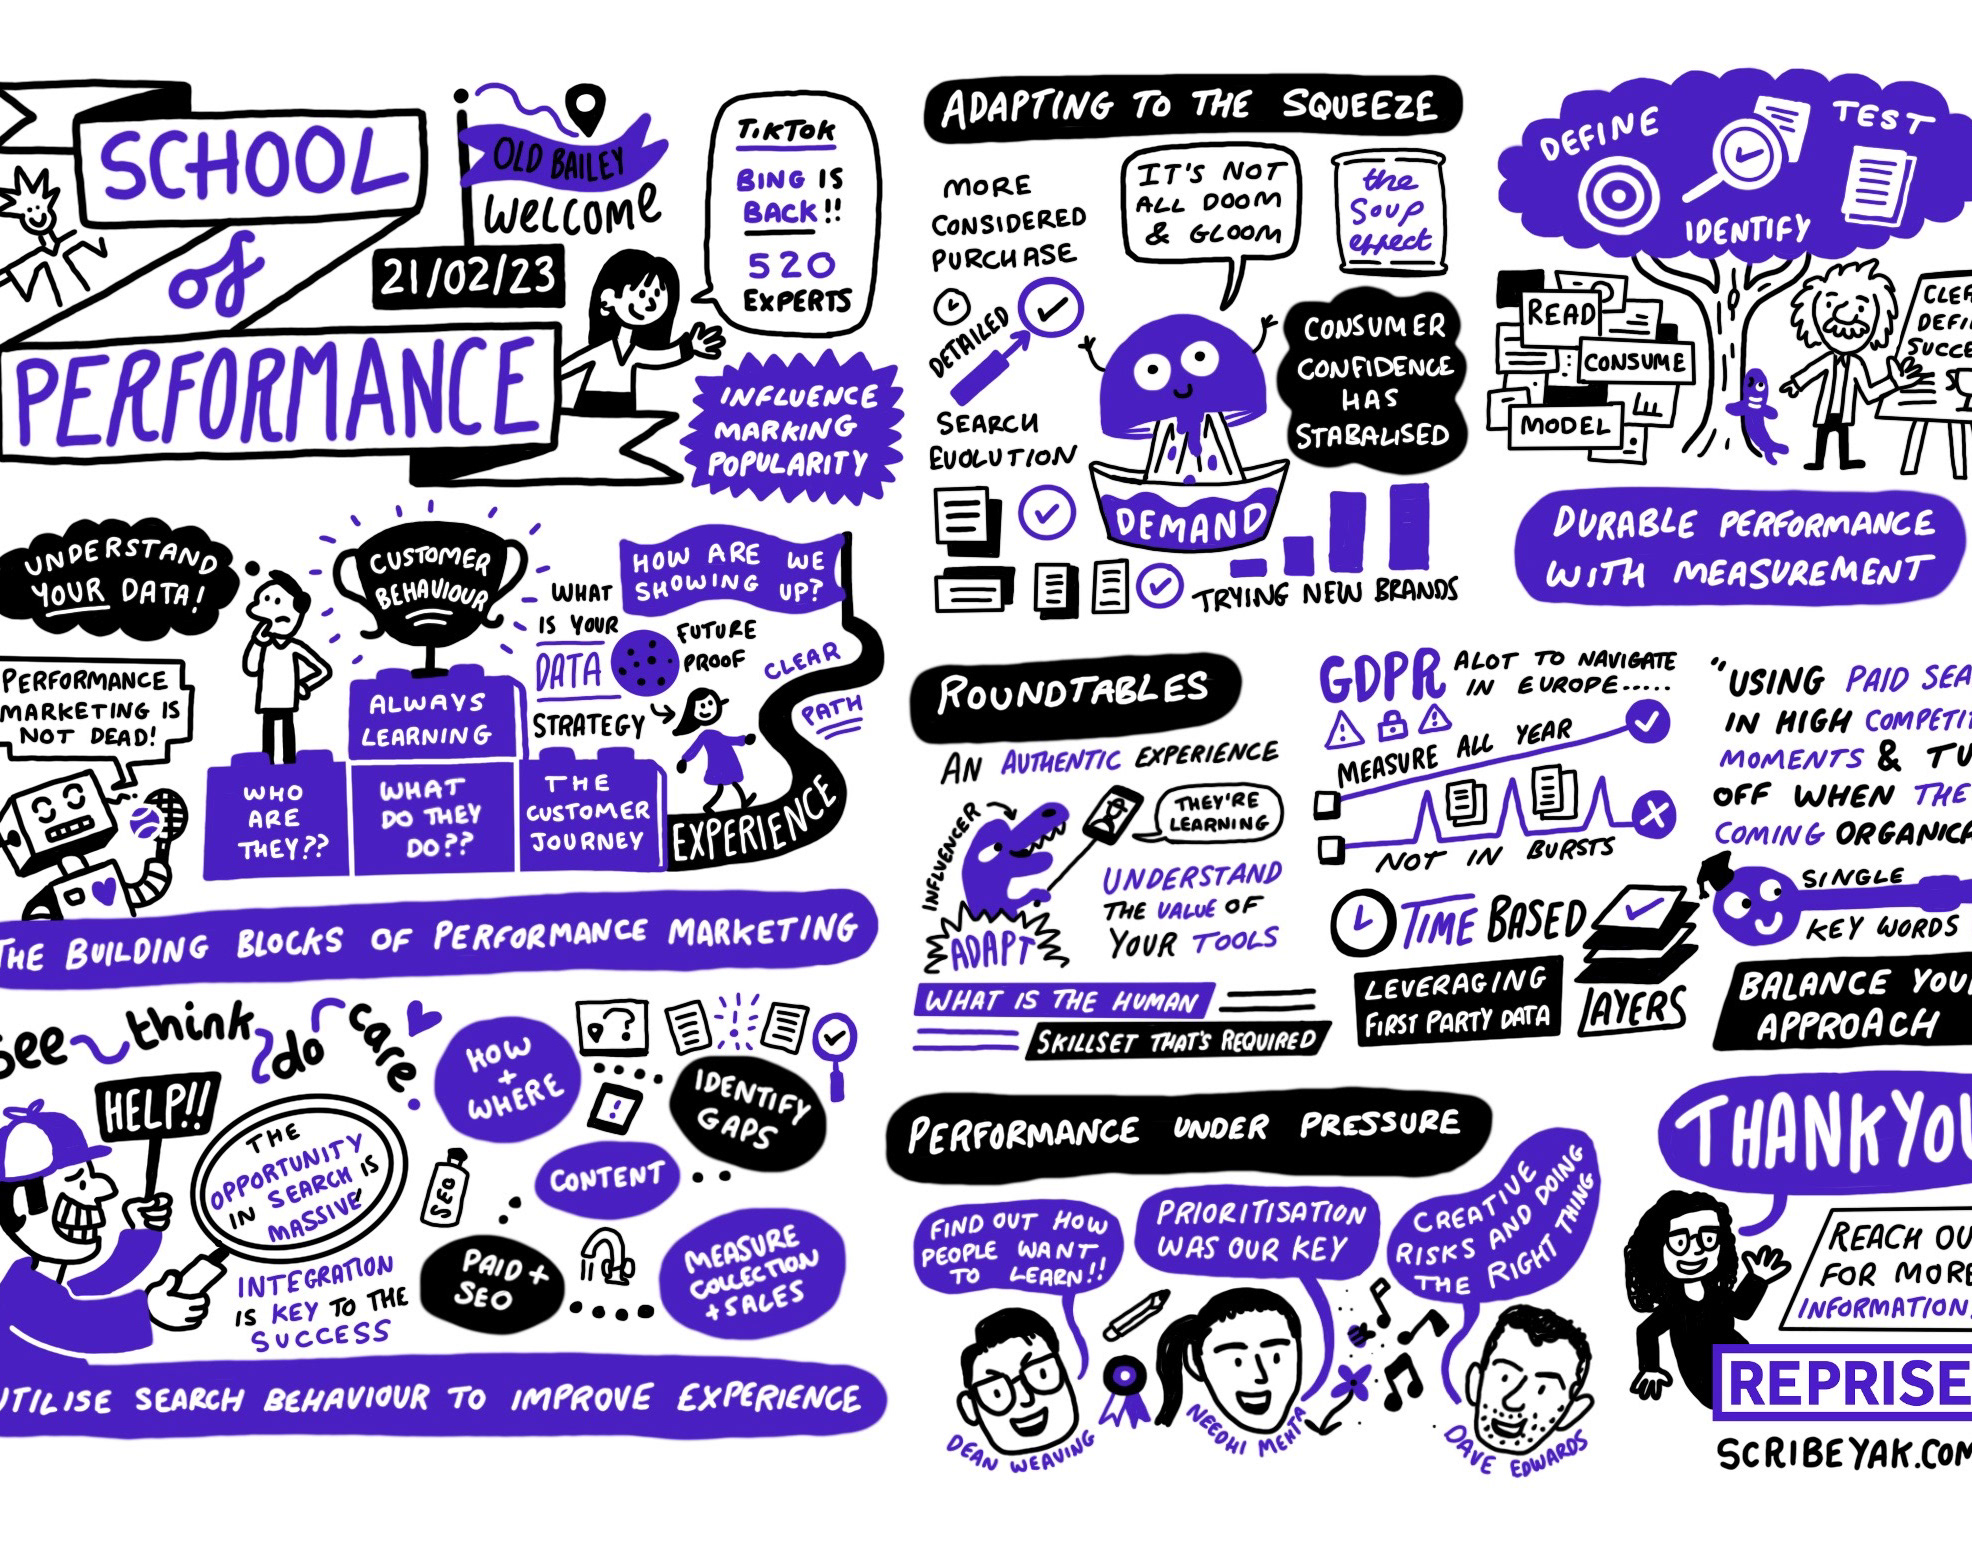 SCHOOL
of
PERFORMANCE
OLD BAILEY
WELCOME
21/02/23
TIKTOK
BING IS
BACK!!
520
EXPERTS
INFLUENCE
MARKING
POPULARITY
UNDERSTAND
YOUR DATA!
PERFORMANCE
MARKETING IS
NOT DEAD!
CUSTOMER
BEHAVIOUR
ALWAYS
LEARNING
WHO
ARE
THEY??
WHAT
DO THEY
DO??
THE
CUSTOMER
JOURNEY
WHAT
IS YOUR
DATA
STRATEGY
HOW ARE WE
SHOWING UP?
FUTURE
PROOF
CLEAR
PATH
EXPERIENCE
THE BUILDING BLOCKS OF PERFORMANCE MARKETING
See think do care
HELP!!
THE
OPPORTUNITY
IN SEARCH IS
MASSIVE
INTEGRATION
IS KEY TO THE
SUCCESS
HOW
+
WHERE
IDENTIFY
GAPS
CONTENT
SEO
PAID +
SEO
MEASURE
COLLECTION
+ SALES
UTILISE SEARCH BEHAVIOUR TO IMPROVE EXPERIENCE
ADAPTING TO THE SQUEEZE
MORE
CONSIDERED
PURCHASE
DETAILED
SEARCH
EVOLUTION
IT'S NOT
ALL DOOM
& GLOOM
the
Soup
effect
CONSUMER
CONFIDENCE
HAS
STABALISED
DEMAND
TRYING NEW BRANDS
DEFINE
TEST
IDENTIFY
READ
CONSUME
MODEL
CLEA
DEFI
SUCCE
DURABLE PERFORMANCE
WITH MEASUREMENT
ROUNDTABLES
AN AUTHENTIC EXPERIENCE
INFLUENCER
ADAPT
THEY'RE
LEARNING
UNDERSTAND
THE VALUE OF
YOUR TOOLS
WHAT IS THE HUMAN
SKILLSET THAT'S REQUIRED
GDPR ALOT TO NAVIGATE
IN EUROPE.....
MEASURE ALL YEAR
NOT IN BURSTS
TIME BASED
LEVERAGING
FIRST PARTY DATA
LAYERS
"USING PAID SEA
IN HIGH COMPETIT
MOMENTS & TU
OFF WHEN THE
COMING ORGANICA
SINGLE
KEY WORDS
BALANCE YOU
APPROACH
PERFORMANCE UNDER PRESSURE
FIND OUT HOW
PEOPLE WANT
TO LEARN!!
PRIORITISATION
WAS OUR KEY
CREATIVE
RISKS AND DOING
THE RIGHT THING
DEAN WEAVING
NEEDHI MEHTA
DAVE EDWARDS
THANKYOU
REACH OU
FOR MORE
INFORMATION
REPRISE
SCRIBEYAK.COM